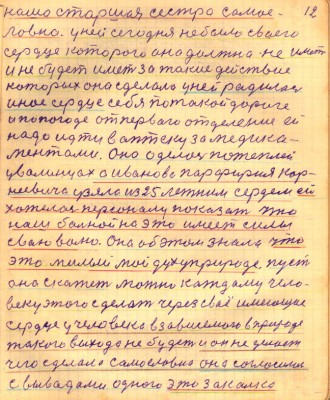 наша старшая сестра самое- 12
ловно. у ней сегодня небыло своего
сердце которого она должна не имет
и не будет имет за такие действие
которых она сделала у ней радилася
иное сердце себя по такой дороге
и по погоде от перваго отделение ей
надо идти в аптеку за медика-
ментами. Она оделася потеплей
у валинцах а Иванова Парфирия Кор-
неевича узяла из 25 летним сердем ей
хотелося персоналу показат что
наш болной на это имеет силы
сваю волю. Она об этом знала что
это милый мой дух у природе. пуст
она скажет можно каждому чело-
веку этого сделат через своё имеющае
сердце у человека взависемого в природе
такого выхода не будет и он не думает
чего сделал. самословно она согласилася
с вывадами одного это закалка